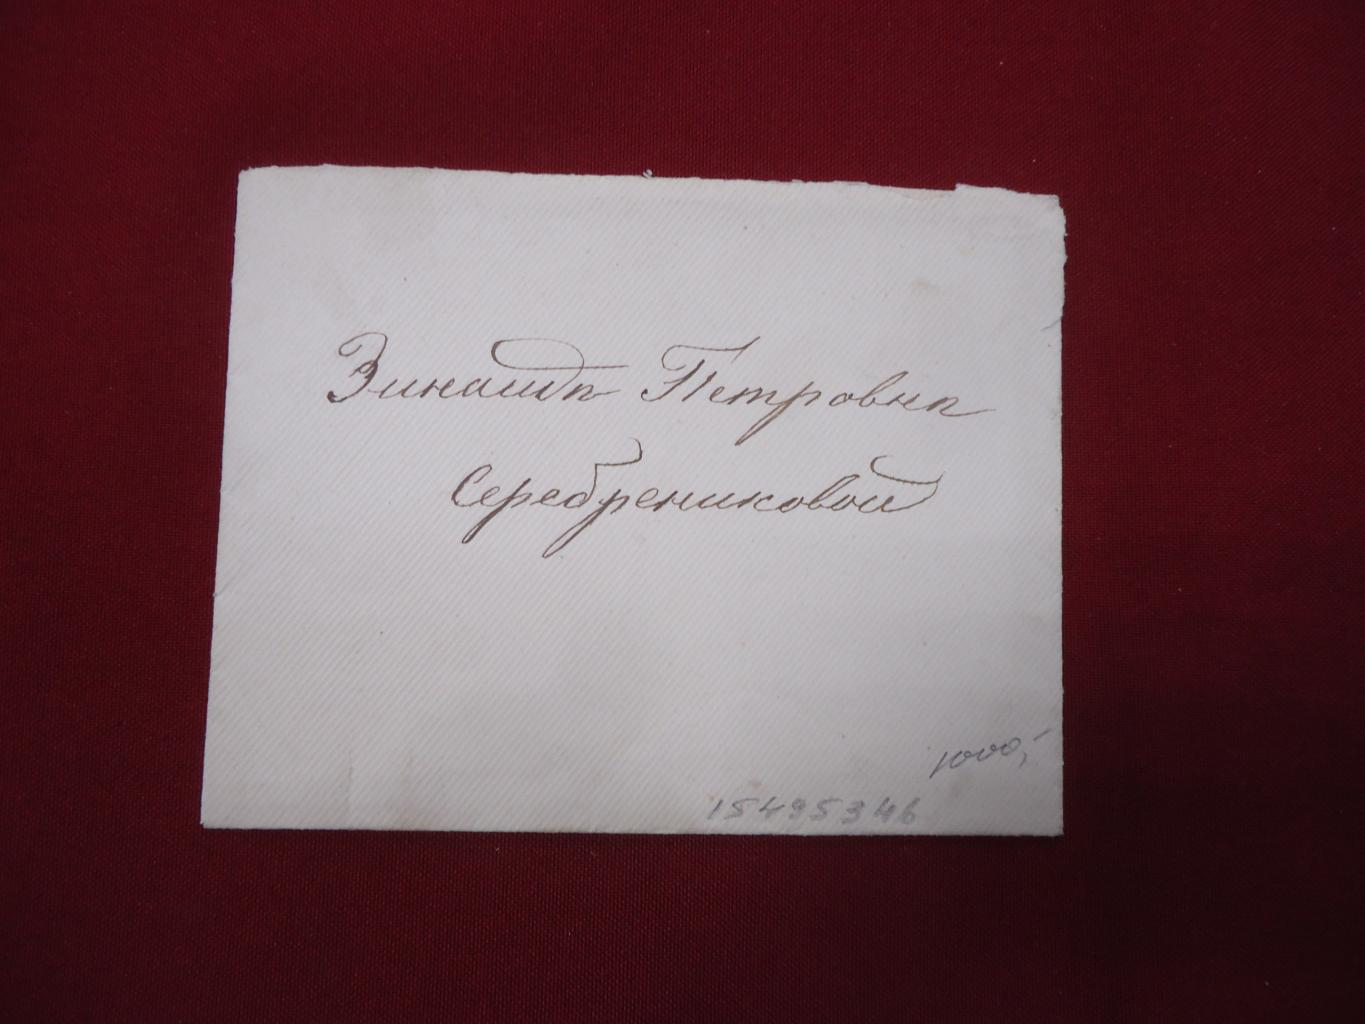 Зинаидѣ Петровнѣ
Серебрениковой
1000,-
15495346